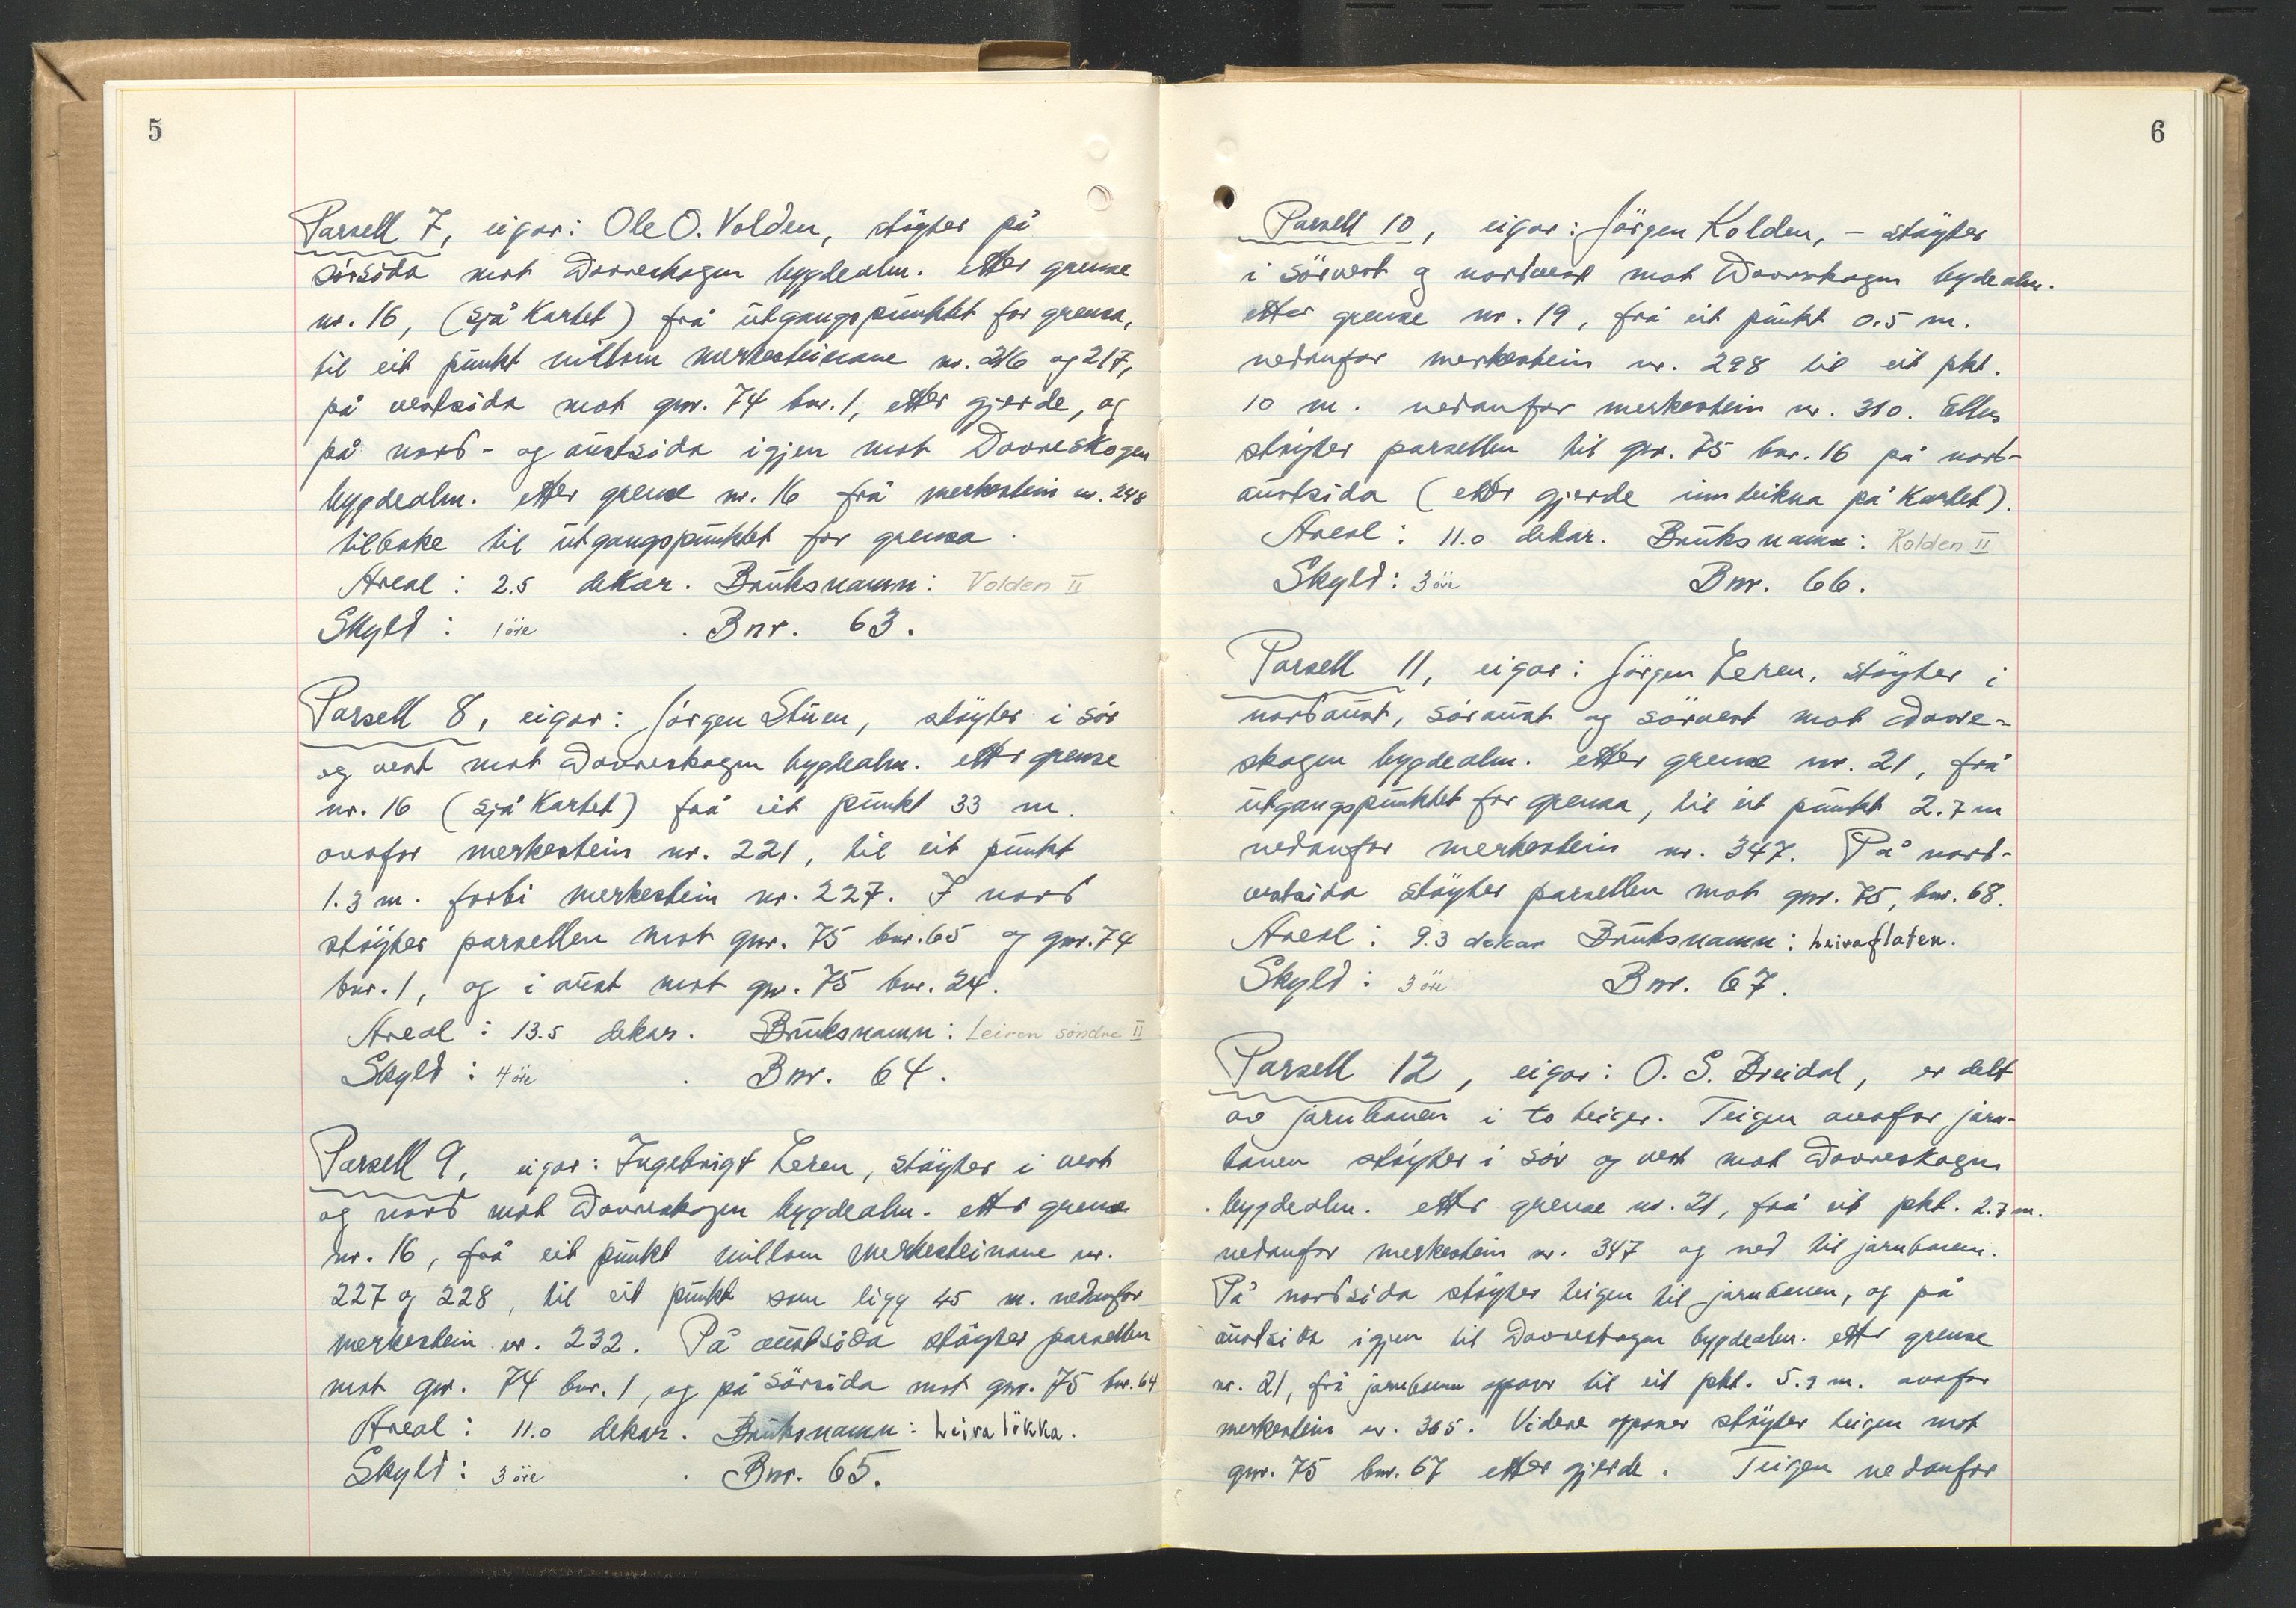 5
Parsell 7, eigar: Ole O. Volden, stöyter på
sörsida mot Dovreskogen bygdealm. etter grense
nr. 16, (sjå Kartet) frå utgangspunktet for grensa,
til eit punkt millom merkesteinane nr. 216 og 217,
på vestsida mot gnr. 74 bnr. 1, etter gjerde, og
på nord- og austsida igjen mot Dovreskogen
bygdealm. etter grense nr. 16 frå merkestein nr. 248
tilbake til utgangspunktet for grensa.
Areal: 2.5 dekar. Bruksnamn: Volden II
Skyld: 1 öre . Bnr. 63.
Parsell 8, eigar: Jörgen Stuen, stöyter i sör
og vest mot Dovreskogen bygdealm. etter grense
nr. 16 (sjå Kartet) frå eit punkt 33 m.
ovafor merkestein nr. 221, til eit punkt
1.3 m. forbi merkestein nr. 227. I nord
stöyter parsellen mot gnr. 75 bnr. 65 og gnr. 74
bnr. 1, og i aust mot gnr. 75 bnr. 24.
Areal: 13.5 dekar. Bruksnamn: Leiren söndre II
Skyld: 4 öre . Bnr. 64.
Parsell 9, eigar: Ingebrigt Leren, stöyter i vest
og nord mot Dovreskogen bygdealm. etter grense
nr. 16, frå eit punkt millom merkesteinane nr.
227 og 228, til eit punkt som ligg 45 m. nedanfor
merkestein nr. 232. På austsida stöyter parsellen
mot gnr. 74 bnr. 1, og på sörsida mot gnr. 75 bnr. 64
Areal: 11.0 dekar. Bruksnamn: Leiralökka.
Skyld: 3 öre . Bnr. 65.
6
Parsell 10, eigar: Jörgen Kolden, - stöyter
i sörvest og nordvest mot Dovreskogen bygdealm.
etter grense nr. 19, frå eit punkt 0.5 m.
nedanfor merkestein nr. 298 til eit pkt.
10 m. nedanfor merkestein nr. 310. Elles
stöyter parsellen til gnr. 75 bnr. 16 på nord-
austsida (etter gjerde innteikna på Kartet).
Areal: 11.0 dekar. Bruksnamn: Kolden II
Skyld: 3 öre Bnr. 66.
Parsell 11, eigar: Jörgen Leren, stöyter i
nordaust, söraust og sörvest mot Dovre-
skogen bygdealm. etter grense nr. 21, frå
utgangspunktet for grensa, til eit punkt 2.7 m
nedanfor merkestein nr. 347. På nord-
vestsida stöyter parsellen mot gnr. 75, bnr. 68.
Areal: 9.3 dekar Bruksnamn: Leiraflaten.
Skyld: 3 öre Bnr. 67.
Parsell 12, eigar: O. S. Breidal, er delt
av jarnbanen i to teiger. Teigen ovafor jarn-
banen stöyter i sör og vest mot Dovreskogen
bygdealm. etter grense nr. 21, frå eit pkt. 2.7 m.
nedanfor merkestein nr. 347 og ned til jarnbanen.
På nordsida stöyter teigen til jarnbanen, og på
austsida igjen til Dovreskogen bygdealm. etter grense
nr. 21, frå jarnbanen oppover til eit pkt. 5.9 m. ovafor
merkestein nr. 365. Videre oppover stöyter teigen mot
gnr. 75 bnr. 67 etter gjerde. Teigen nedanfor